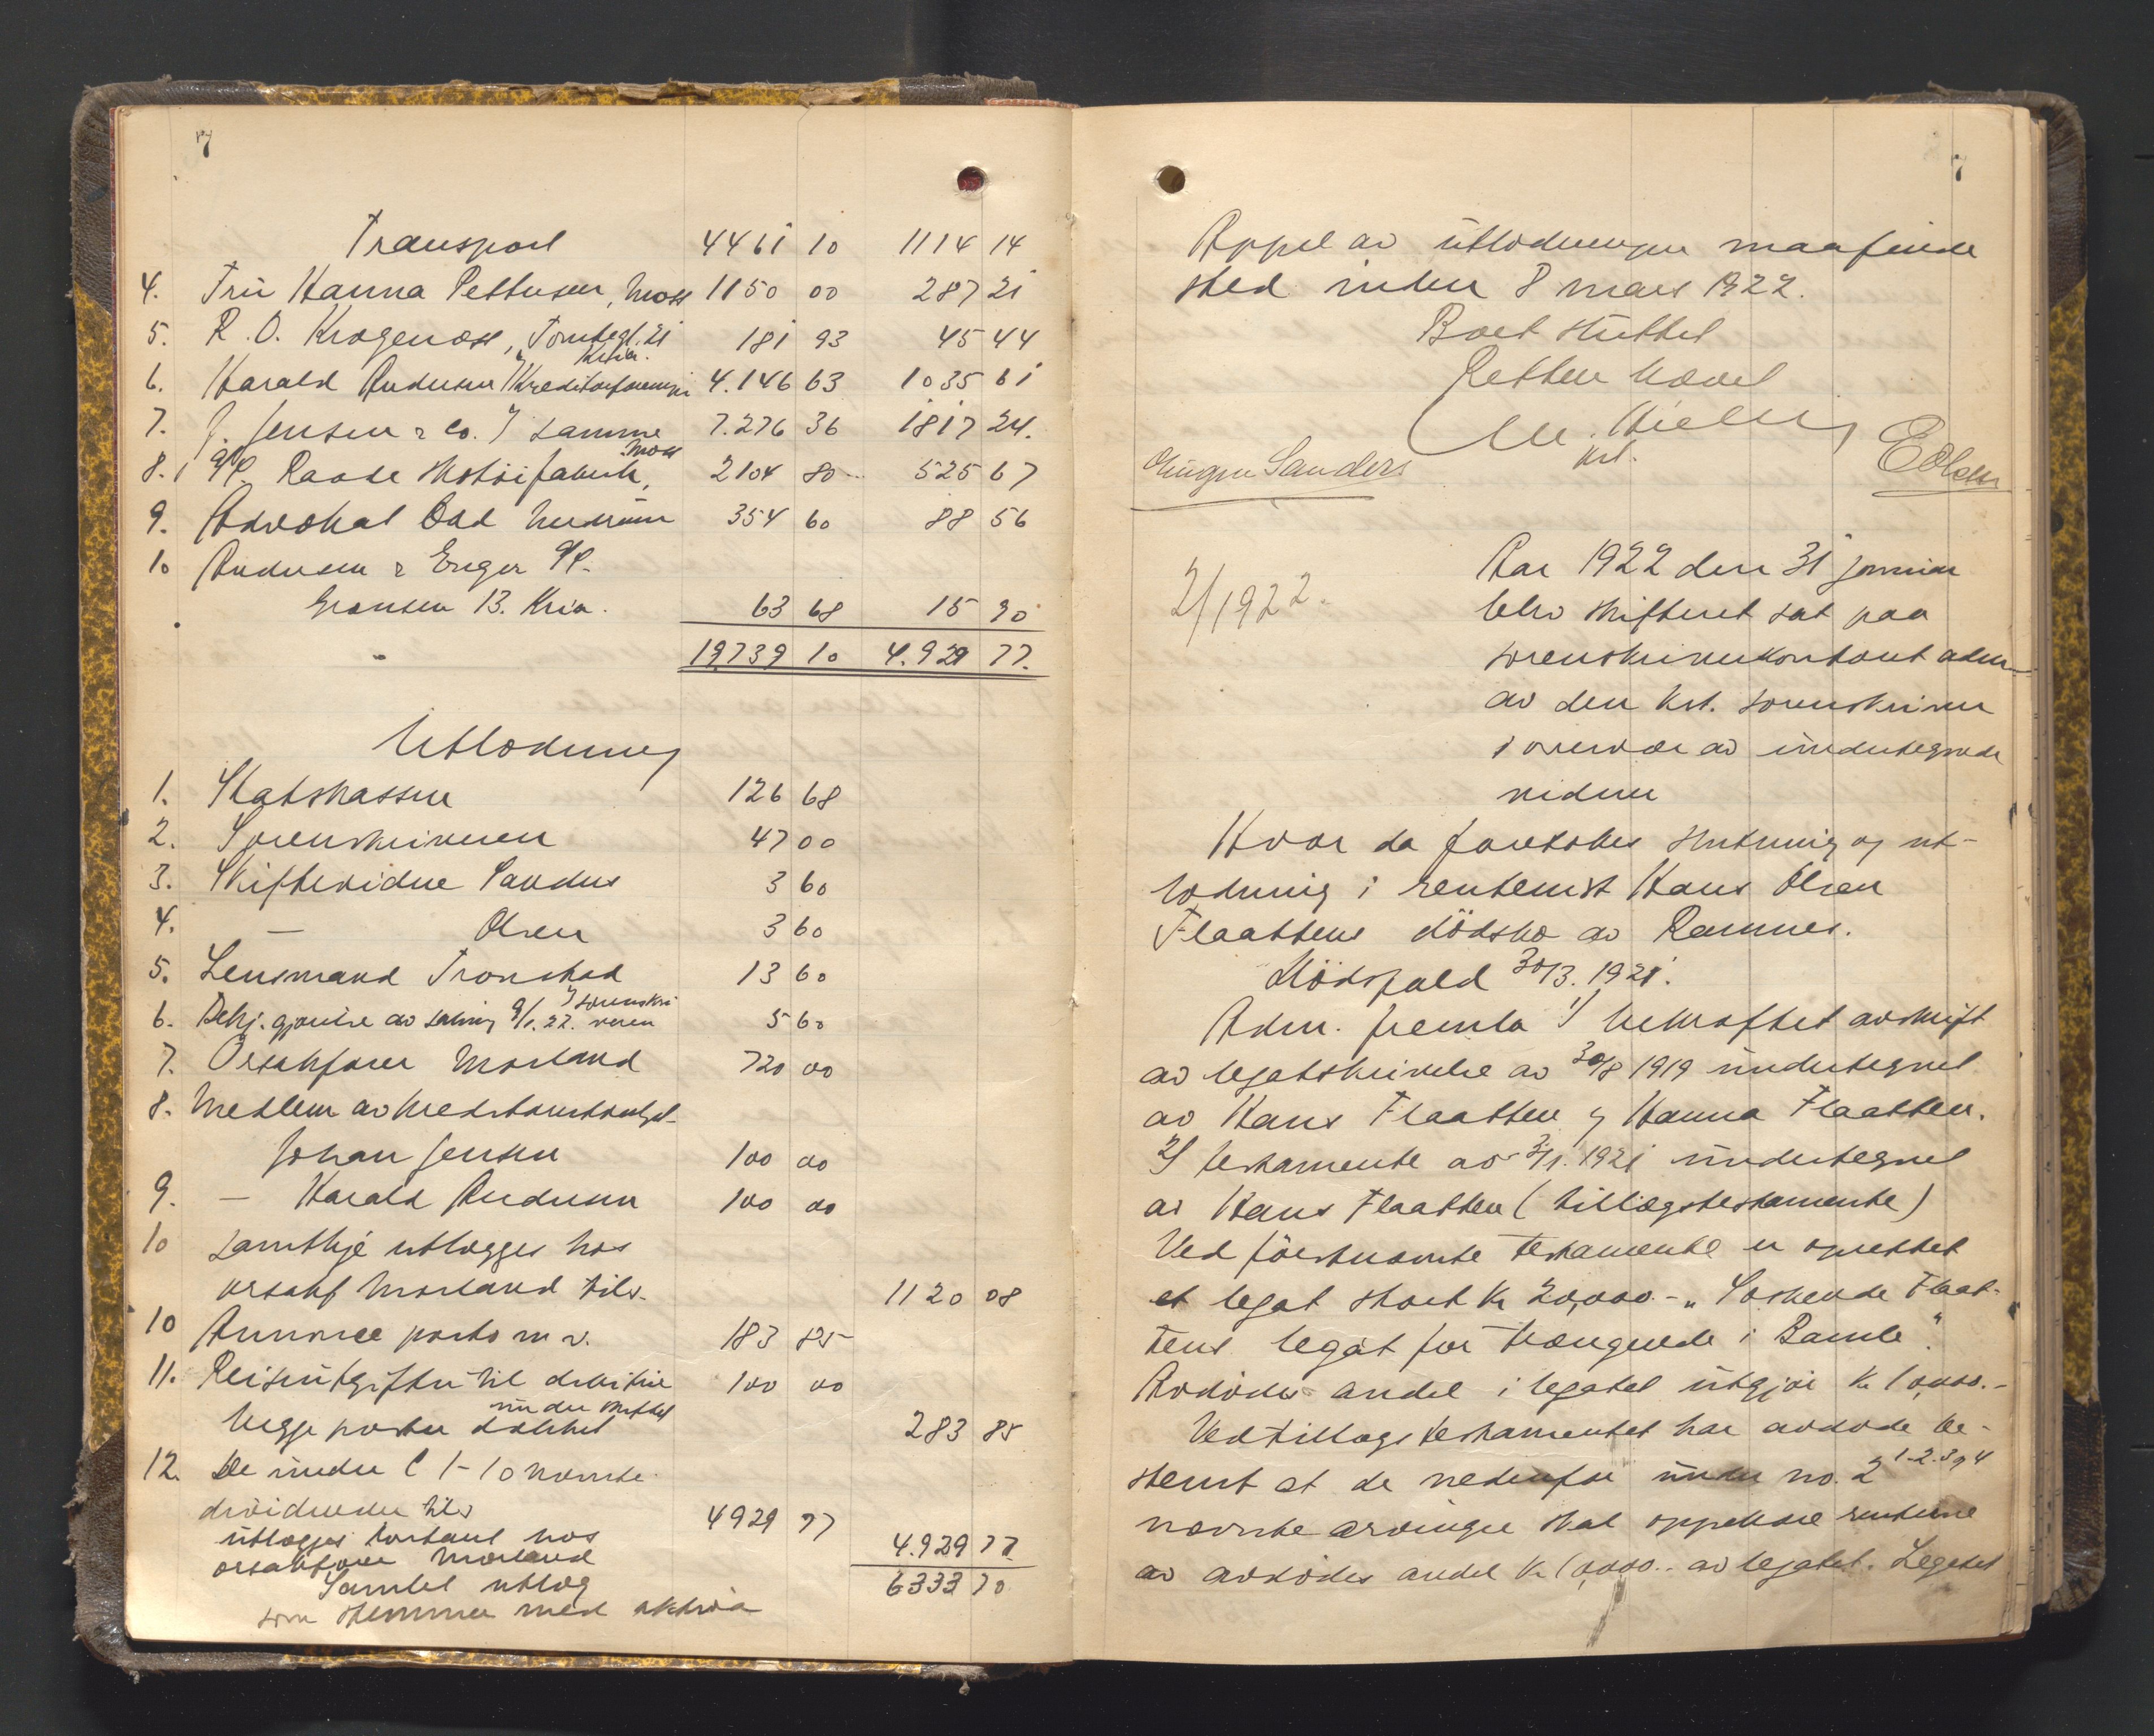 7
Transport 4461 10 1114 14
4. Fru Hanna Pettersen, Moss 1150 00 287 21
5. R. O. Krogenæss, Tomtegt. 21 Kr.ia. 181 93 45 44
6. Harald Andersen / Kreditorforening 4.146 63 1035 61
7. J. Jensen & Co. / samme 7.276 36 1817 24.
8. A/S. Raade Skotøifabrik, Moss 2104 80 525 67
9. Advokat Odd 354 60 88 56
10 Andersen & Enger A/S.
Grønsen 13. Kria. 63 68 15 90
19739 10 4.929 77.
Utlodning
1. Statskassen 126 68
2. Sorenskriveren 47 00
3. Skiftevidne Sanders 3 60
4. — Olsen 3 60
5. Lensmand Tronstad 13 60
6. Bekj.gjørelse av salving 9/1. 22. / sorenskriveren 5 60
7. Orsakfører Morland 720 00
8. Medlem av kreditorutvalget
Johan Jensen 100 00
9. — Harald Andersen 100 00
10 samtlige utlægges hos
orsakf Morland tils. 1120 08
10 Annonce porto m. v. 183 85
11. Reiseutgifter til 100 00
begge poster dækket under skiftet 283 85
12. De under C 1-10 nævnte
dividender tils 4929 77
utlægges kontant hos
orsakfører Morland 4.929 77
Samlet utlæg 6333 70
som stemmer med aktiva
7
Appel av utlodningen maa finde
sted inden 8 mars 1922.
Boet sluttet
Retten hævet
M.
Kst.
Sanders EOlsen
2/1922.
Aar 1922 den 31 januar
blev skifteret sat paa
sorenskriverkontoret adm
av den kst. sorenskriver
i overvær av undertegnede
vidner
Hvor da foretokes slutning og ut-
lodning i rentenist Hans Olsen
Flaattens dödsbo av Rannes.
Dödsfald 30/3. 1921.
Adm. fremla 1/ bekræftet avskrift
av legatskrivelse av 30/8 1919 undertegnet
av Hans Flaatten og Hanna Flaatten.
2/ testamente av 3/1. 1921 undertegnet
av Hans Flaatten (tillægstestamente)
Ved förstnævnte testamente er oprettet
et legat stort kr 20,000.- „Söskende Flaat-
tens legat for trængende i Bamle".
Avdødes andel i legatet utgjør kr 10,000.-
Ved tillægstestamentet har avdøde be-
stemt at de nedenfor under no. 2 1-2-3 og 4
nævnte arvinger skal oppebære renterne
av avdødes andel kr 10,000.- av legatet. Legatet